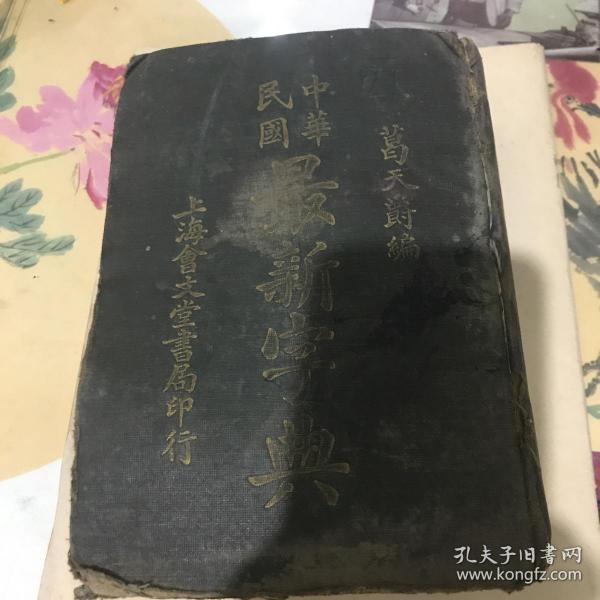 葛天爵編
中華
民國
最新字典
上海會文堂書局印行
孔夫子旧书网
www.kongfz.com